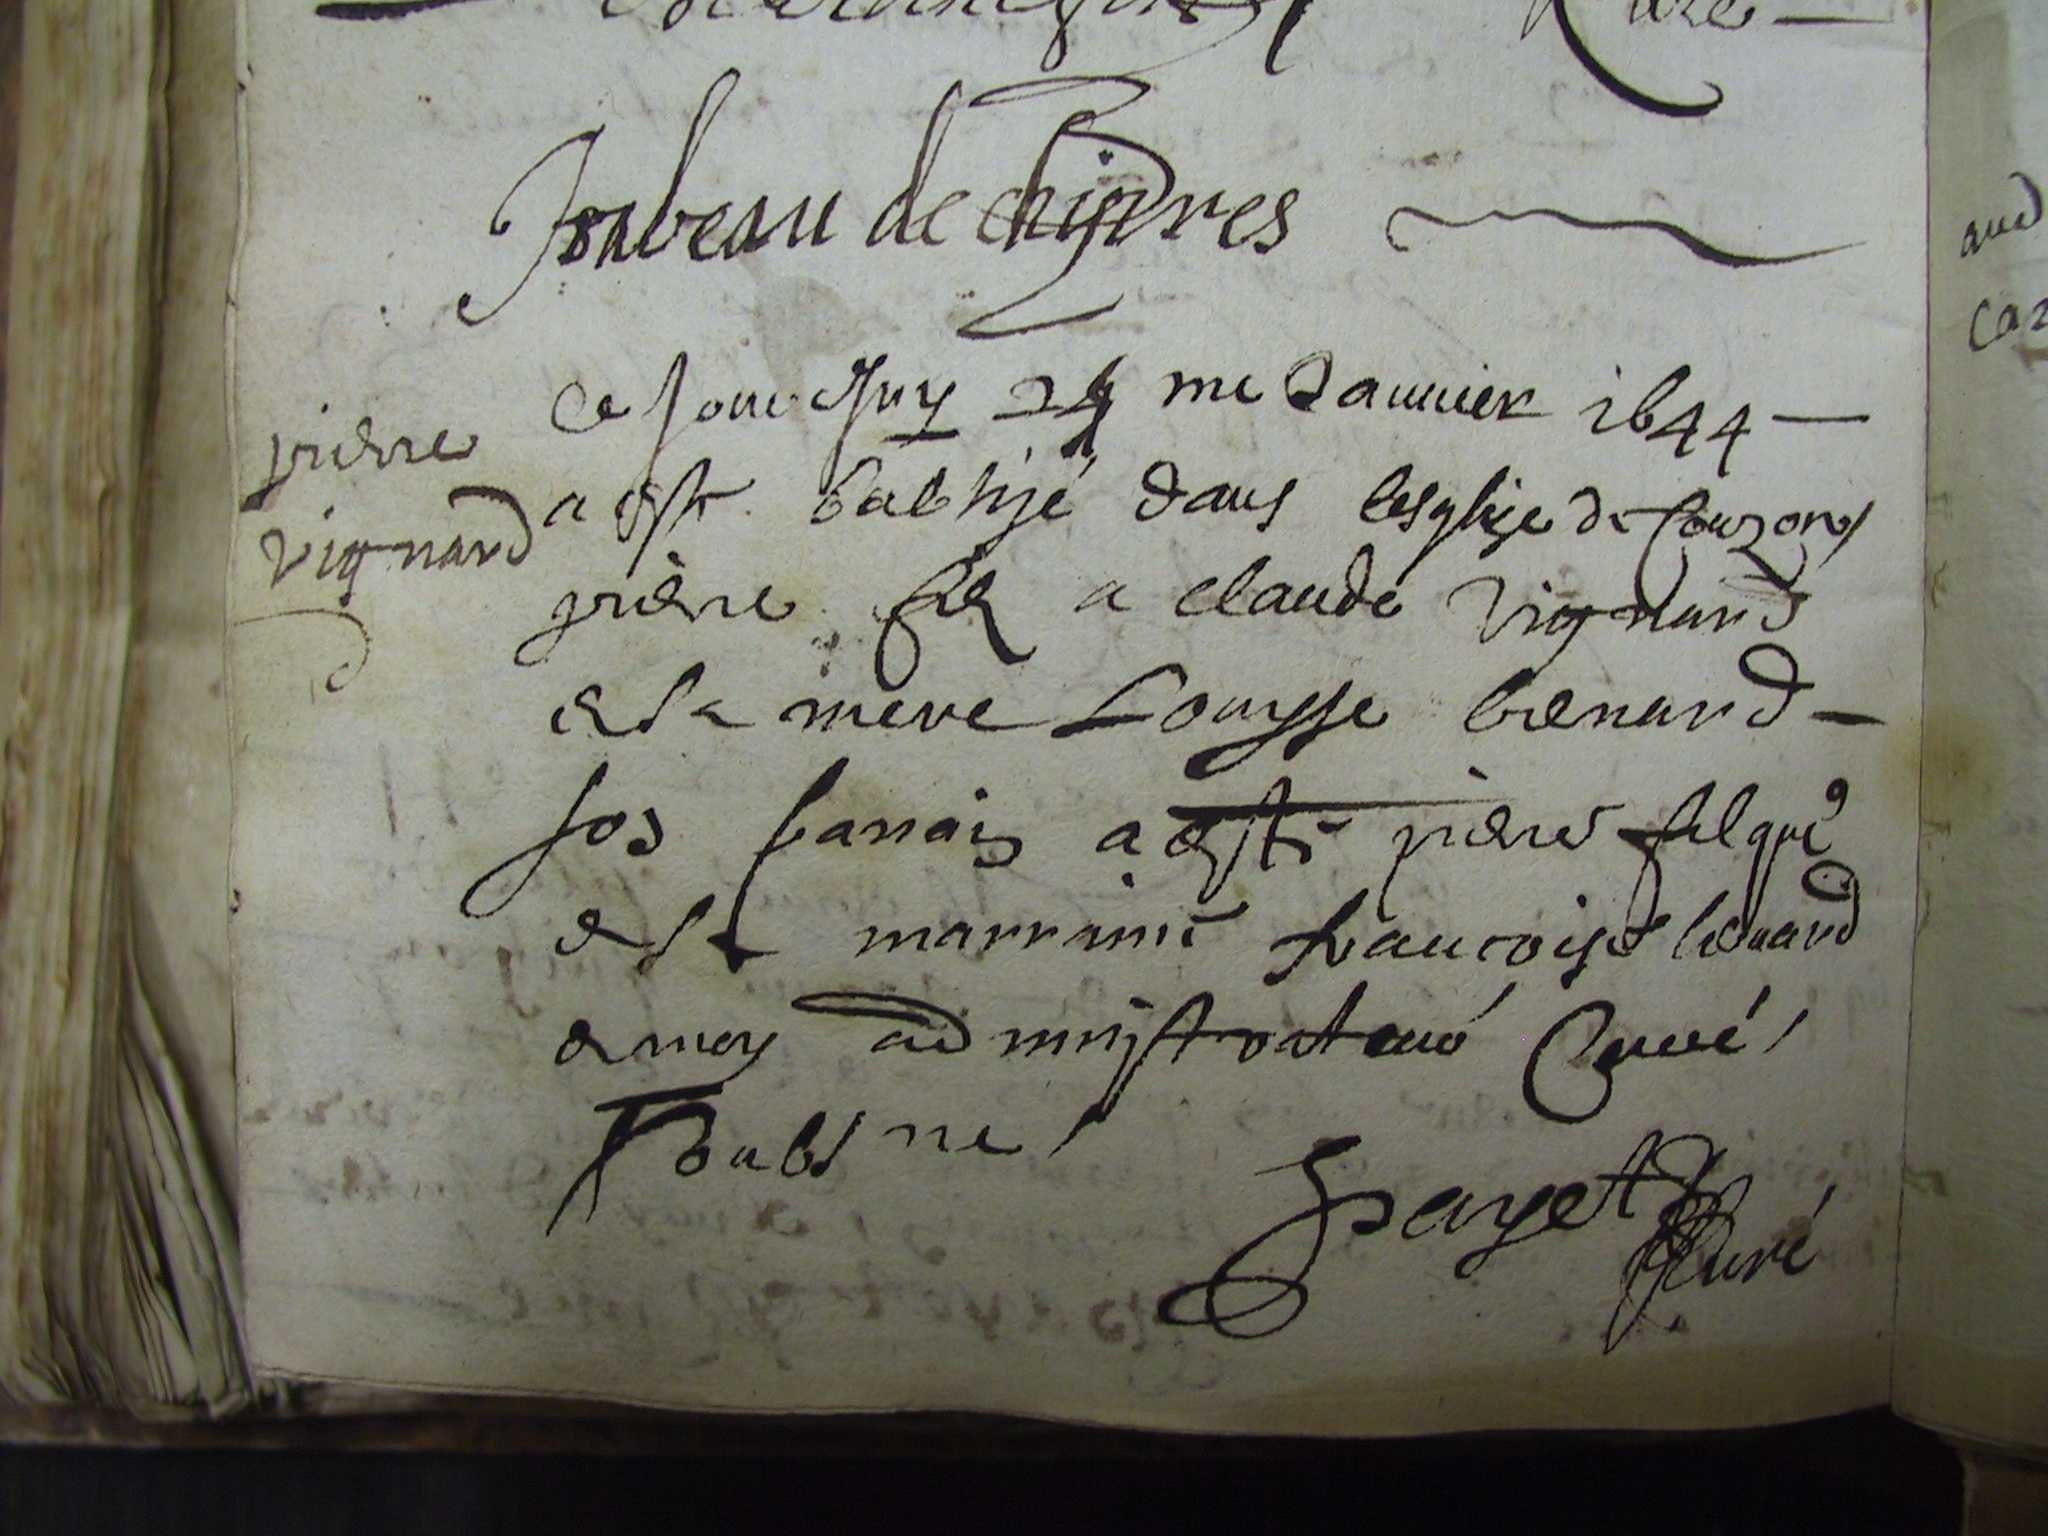 Curé
Jombeau de chignres
pierre
vignard
Ce jourdhuy 24 me Janvier 1644
a este babtijé dans lesglije de Couzon
pierre filz a claude vignard
et sa mere Louysse benard
sos parain a esté piere
et sa marraine francoise benard
et moy administrateur Curé
soubsne
Payet
Curé